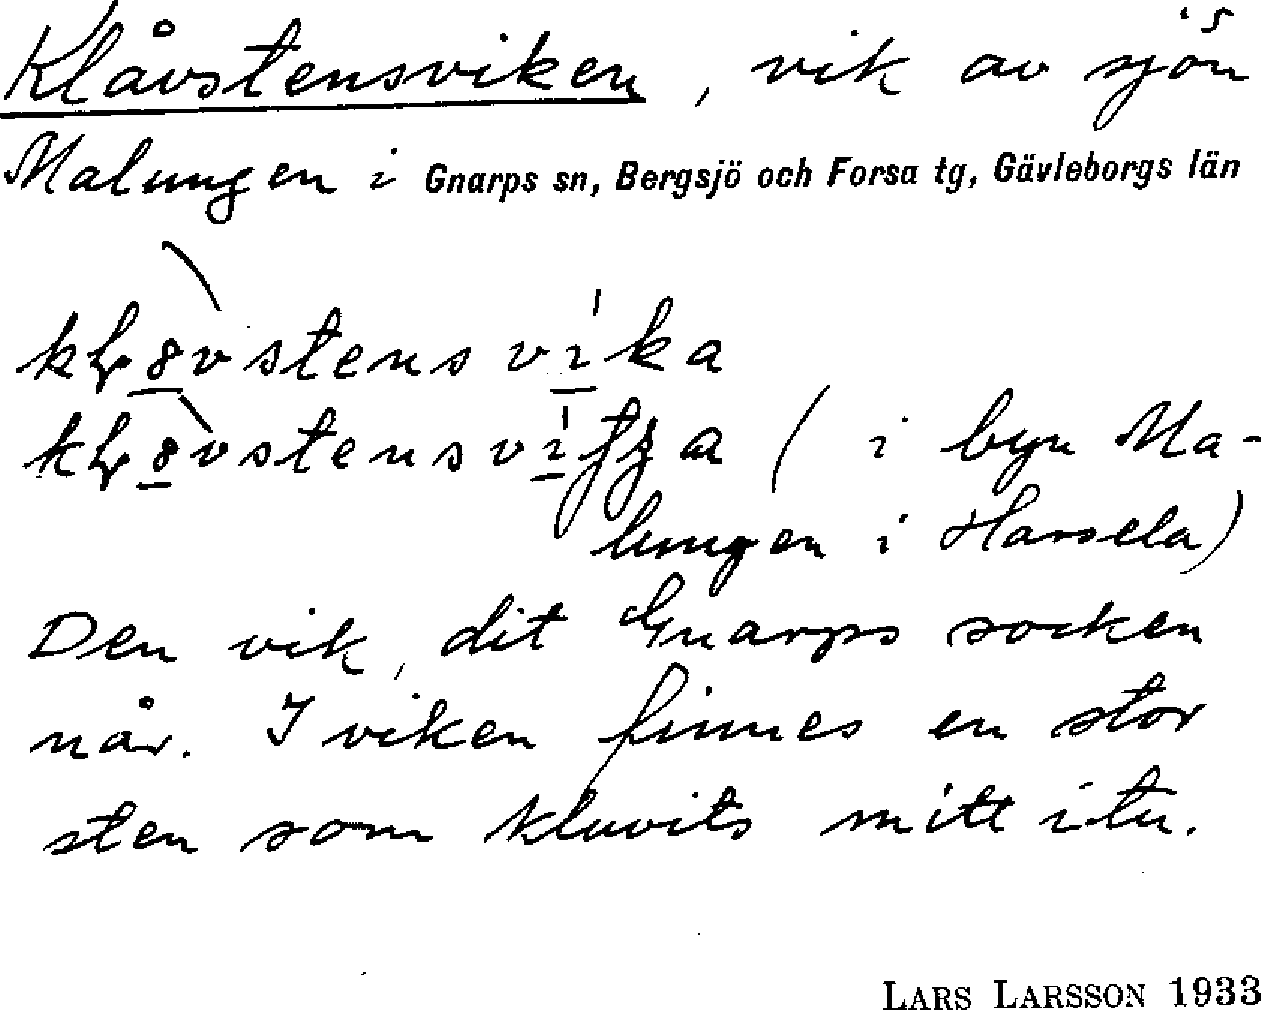 Klåvstensviken, vik av sjön
Malungen i Gnarps sn, Bergsjö och Forsa tg, Gävleborgs län
(i byn Ma-
lungen i Harsela)
Den vik, dit Gnarps socken
når. I viken finnes en stor
sten som kluvits mitt itu.
LARS LARSSON 1933